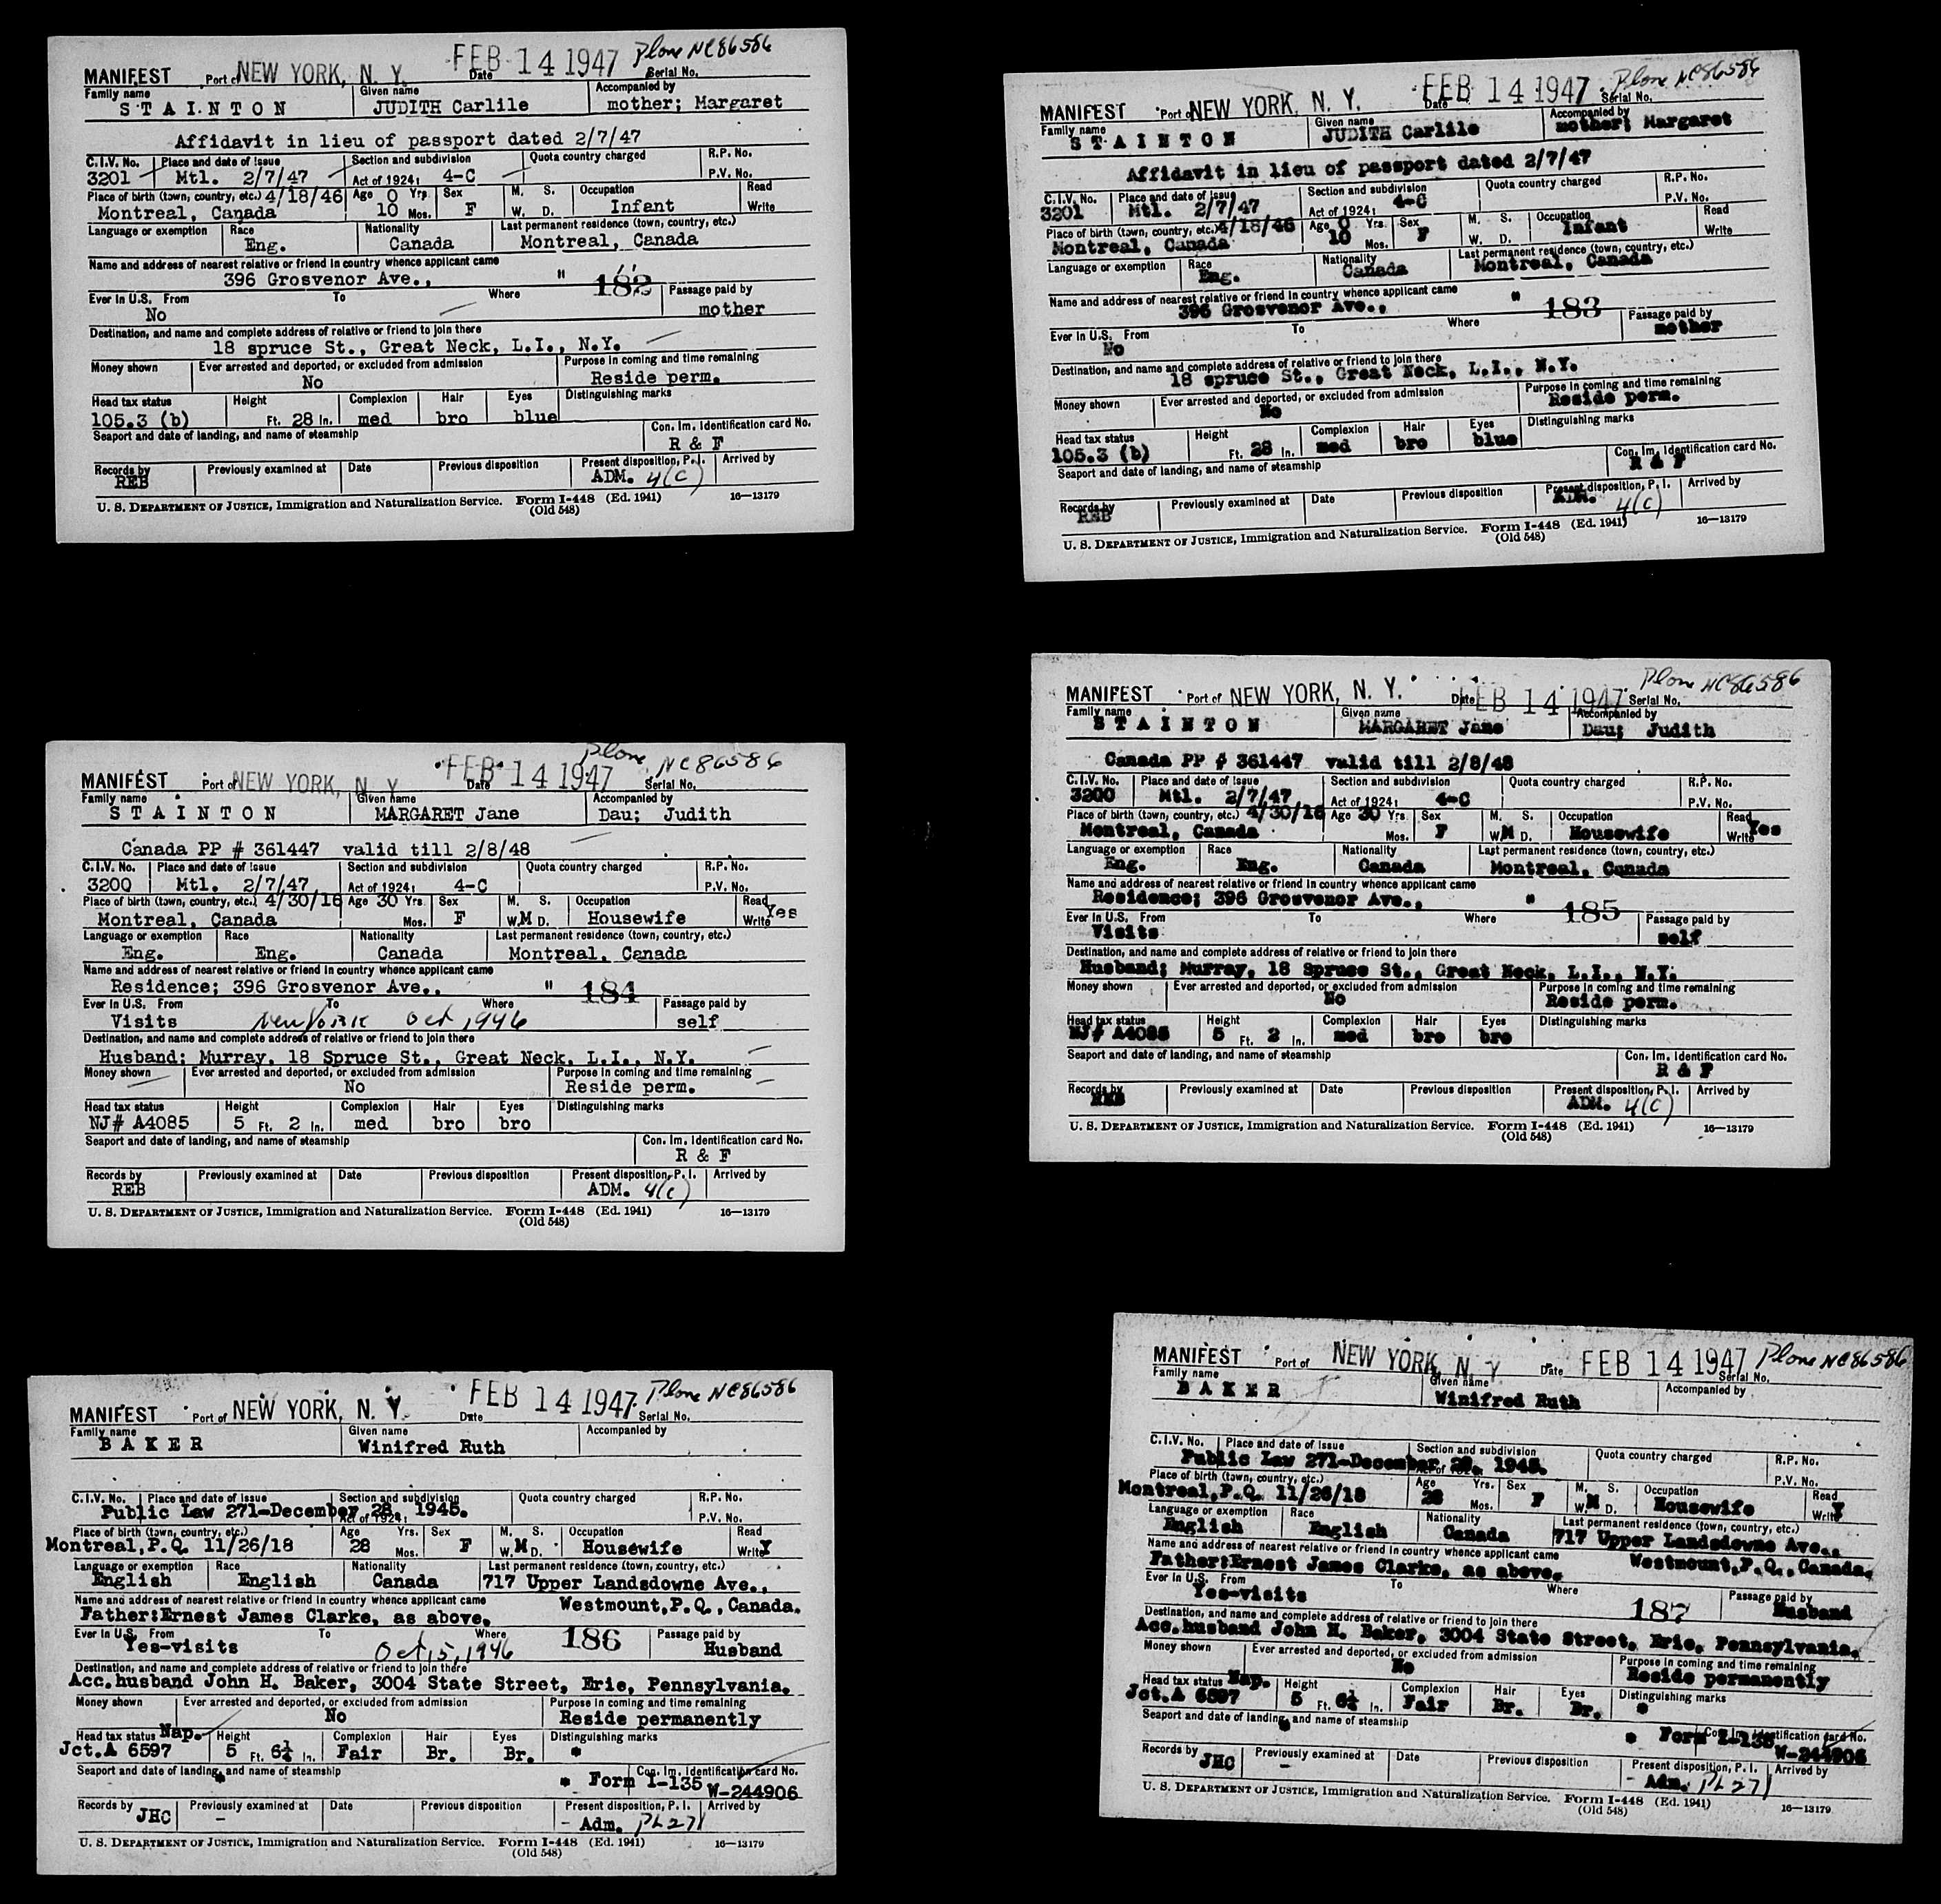 MANIFEST Port of NEW YORK, N. Y. Date FEB 14 1947 Serial No. Plane NC86586
Family name Given name Accompanied by
STAINTON JUDITH Carlile mother; Margaret
Affidavit in lieu of passport dated 2/7/47
C.I.V. No. Place and date of issue Section and subdivision Quota country charged R.P. No.
3201 Mtl. 2/7/47 Act of 1924: 4-C P.V. No.
Place of birth (town, country, etc.) 4/18/46 Age 0 Yrs. Sex M. S. Occupation Read
Montreal, Canada 10 Mos. F W. D. Infant Write
Language or exemption Race Nationality Last permanent residence (town, country, etc.)
Eng. Canada Montreal, Canada
Name and address of nearest relative or friend in country whence applicant came
396 Grosvenor Ave., " 182
Ever in U.S. From To Where Passage paid by
No mother
Destination, and name and complete address of relative or friend to join there
18 spruce St., Great Neck, L.I., N.Y.
Money shown Ever arrested and deported, or excluded from admission Purpose in coming and time remaining
No Reside perm.
Head tax status Height Complexion Hair Eyes Distinguishing marks
105.3 (b) Ft. 28 In. med bro blue
Seaport and date of landing, and name of steamship Con. Im. Identification card No.
R & F
Records by Previously examined at Date Previous disposition Present disposition, P. I. Arrived by
REB ADM. 4(c)
U. S. DEPARTMENT OF JUSTICE, Immigration and Naturalization Service. Form I-448 (Ed. 1941) 16—13179
(Old 548)
MANIFEST Port of NEW YORK, N. Y. Date FEB 14 1947 Serial No. Plane NC86586
Family name Given name Accompanied by
STAINTON JUDITH Carlile mother; Margaret
Affidavit in lieu of passport dated 2/7/47
C.I.V. No. Place and date of issue Section and subdivision Quota country charged R.P. No.
3201 Mtl. 2/7/47 Act of 1924: 4-C P.V. No.
Place of birth (town, country, etc.) 4/18/46 Age 0 Yrs. Sex M. S. Occupation Read
Montreal, Canada 10 Mos. F W. D. Infant Write
Language or exemption Race Nationality Last permanent residence (town, country, etc.)
Eng. Canada Montreal, Canada
Name and address of nearest relative or friend in country whence applicant came
396 Grosvenor Ave., " 183
Ever in U.S. From To Where Passage paid by
No mother
Destination, and name and complete address of relative or friend to join there
18 spruce St., Great Neck, L.I., N.Y.
Money shown Ever arrested and deported, or excluded from admission Purpose in coming and time remaining
No Reside perm.
Head tax status Height Complexion Hair Eyes Distinguishing marks
105.3 (b) Ft. 28 In. med bro blue
Seaport and date of landing, and name of steamship Con. Im. Identification card No.
R & F
Records by Previously examined at Date Previous disposition Present disposition, P. I. Arrived by
REB ADM. 4(c)
U. S. DEPARTMENT OF JUSTICE, Immigration and Naturalization Service. Form I-448 (Ed. 1941) 16—13179
(Old 548)
MANIFEST Port of NEW YORK, N. Y. Date FEB 14 1947 Serial No. Plane NC86586
Family name Given name Accompanied by
STAINTON MARGARET Jane Dau; Judith
Canada PP # 361447 valid till 2/8/48
C.I.V. No. Place and date of issue Section and subdivision Quota country charged R.P. No.
3200 Mtl. 2/7/47 Act of 1924: 4-C P.V. No.
Place of birth (town, country, etc.) 4/30/16 Age 30 Yrs. Sex M. S. Occupation Read Yes
Montreal, Canada Mos. F W. M D. Housewife Write
Language or exemption Race Nationality Last permanent residence (town, country, etc.)
Eng. Eng. Canada Montreal, Canada
Name and address of nearest relative or friend in country whence applicant came
Residence; 396 Grosvenor Ave., " 184
Ever in U.S. From To Where Passage paid by
Visits New York Oct, 1946 self
Destination, and name and complete address of relative or friend to join there
Husband; Murray, 18 Spruce St., Great Neck, L.I., N.Y.
Money shown Ever arrested and deported, or excluded from admission Purpose in coming and time remaining
No Reside perm.
Head tax status Height Complexion Hair Eyes Distinguishing marks
NJ# A4085 5 Ft. 2 In. med bro bro
Seaport and date of landing, and name of steamship Con. Im. Identification card No.
R & F
Records by Previously examined at Date Previous disposition Present disposition, P. I. Arrived by
REB ADM. 4(c)
U. S. DEPARTMENT OF JUSTICE, Immigration and Naturalization Service. Form I-448 (Ed. 1941) 16—13179
(Old 548)
MANIFEST Port of NEW YORK, N. Y. Date FEB 14 1947 Serial No. Plane NC86586
Family name Given name Accompanied by
STAINTON MARGARET Jane Dau; Judith
Canada PP # 361447 valid till 2/8/48
C.I.V. No. Place and date of issue Section and subdivision Quota country charged R.P. No.
3200 Mtl. 2/7/47 Act of 1924: 4-C P.V. No.
Place of birth (town, country, etc.) 4/30/16 Age 30 Yrs. Sex M. S. Occupation Read Yes
Montreal, Canada Mos. F W. M D. Housewife Write
Language or exemption Race Nationality Last permanent residence (town, country, etc.)
Eng. Eng. Canada Montreal, Canada
Name and address of nearest relative or friend in country whence applicant came
Residence; 396 Grosvenor Ave., " 185
Ever in U.S. From To Where Passage paid by
Visits self
Destination, and name and complete address of relative or friend to join there
Husband; Murray, 18 Spruce St., Great Neck, L.I., N.Y.
Money shown Ever arrested and deported, or excluded from admission Purpose in coming and time remaining
No Reside perm.
Head tax status Height Complexion Hair Eyes Distinguishing marks
NJ# A4085 5 Ft. 2 In. med bro bro
Seaport and date of landing, and name of steamship Con. Im. Identification card No.
R & F
Records by Previously examined at Date Previous disposition Present disposition, P. I. Arrived by
REB ADM. 4(c)
U. S. DEPARTMENT OF JUSTICE, Immigration and Naturalization Service. Form I-448 (Ed. 1941) 16—13179
(Old 548)
MANIFEST Port of NEW YORK, N. Y. Date FEB 14 1947 Serial No. Plane NC86586
Family name Given name Accompanied by
BAKER Winifred Ruth
C.I.V. No. Place and date of issue Section and subdivision Quota country charged R.P. No.
Public Law 271-December 28, 1945. Act of 1924: P.V. No.
Place of birth (town, country, etc.) Age Yrs. Sex M. S. Occupation Read
Montreal,P.Q. 11/26/18 28 Mos. F W. M D. Housewife Write Y
Language or exemption Race Nationality Last permanent residence (town, country, etc.)
English English Canada 717 Upper Landsdowne Ave.,
Name and address of nearest relative or friend in country whence applicant came Westmount,P.Q.,Canada.
Father:Ernest James Clarke, as above.
Ever in U.S. From To Where 186 Passage paid by
Yes-visits Oct, 5, 1946 Husband
Destination, and name and complete address of relative or friend to join there
Acc.husband John H. Baker, 3004 State Street, Erie, Pennsylvania.
Money shown Ever arrested and deported, or excluded from admission Purpose in coming and time remaining
No Reside permanently
Head tax status Nap. Height Complexion Hair Eyes Distinguishing marks
Jct.A 6597 5 Ft. 6¼ In. Fair Br. Br. *
Seaport and date of landing, and name of steamship Con. Im. Identification card No.
* Form I-135 W-244906
Records by Previously examined at Date Previous disposition Present disposition, P. I. Arrived by
JHC - - Adm. PL 271
U. S. DEPARTMENT OF JUSTICE, Immigration and Naturalization Service. Form I-448 (Ed. 1941) 16—13179
(Old 548)
MANIFEST Port of NEW YORK, N. Y. Date FEB 14 1947 Serial No. Plane NC86586
Family name Given name Accompanied by
BAKER Winifred Ruth
C.I.V. No. Place and date of issue Section and subdivision Quota country charged R.P. No.
Public Law 271-December 28, 1945. P.V. No.
Place of birth (town, country, etc.) Age Yrs. Sex M. S. Occupation Read
Montreal,P.Q. 11/26/18 28 Mos. F W. M D. Housewife Write Y
Language or exemption Race Nationality Last permanent residence (town, country, etc.)
English English Canada 717 Upper Landsdowne Ave.,
Name and address of nearest relative or friend in country whence applicant came Westmount,P.Q.,Canada.
Father:Ernest James Clarke, as above.
Ever in U.S. From To Where 187 Passage paid by
Yes-visits Husband
Destination, and name and complete address of relative or friend to join there
Acc.husband John H. Baker, 3004 State Street, Erie, Pennsylvania.
Money shown Ever arrested and deported, or excluded from admission Purpose in coming and time remaining
No Reside permanently
Head tax status Nap. Height Complexion Hair Eyes Distinguishing marks
Jct.A 6597 5 Ft. 6¼ In. Fair Br. Br. *
Seaport and date of landing, and name of steamship Con. Im. Identification card No.
* Form I-135 W-244906
Records by Previously examined at Date Previous disposition Present disposition, P. I. Arrived by
JHC - - Adm. PL 271
U. S. DEPARTMENT OF JUSTICE, Immigration and Naturalization Service. Form I-448 (Ed. 1941) 16—13179
(Old 548)